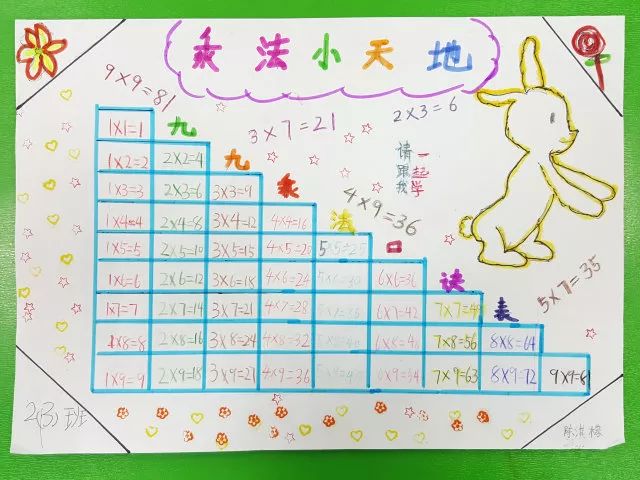 乘法小天地
9×9=81
2×3=6
3×7=21
请跟我
一起学
4×9=36
5×7=35
九九乘法口诀表
1×1=1
1×2=2 2×2=4
1×3=3 2×3=6 3×3=9
1×4=4 2×4=8 3×4=12 4×4=16
1×5=5 2×5=10 3×5=15 4×5=20 5×5=25
1×6=6 2×6=12 3×6=18 4×6=24 5×6=30 6×6=36
1×7=7 2×7=14 3×7=21 4×7=28 6×7=42 7×7=49
1×8=8 2×8=16 3×8=24 4×8=32 6×8=48 7×8=56 8×8=64
1×9=9 2×9=18 3×9=21 4×9=36 6×9=54 7×9=63 8×9=72 9×9=81
2(3)班